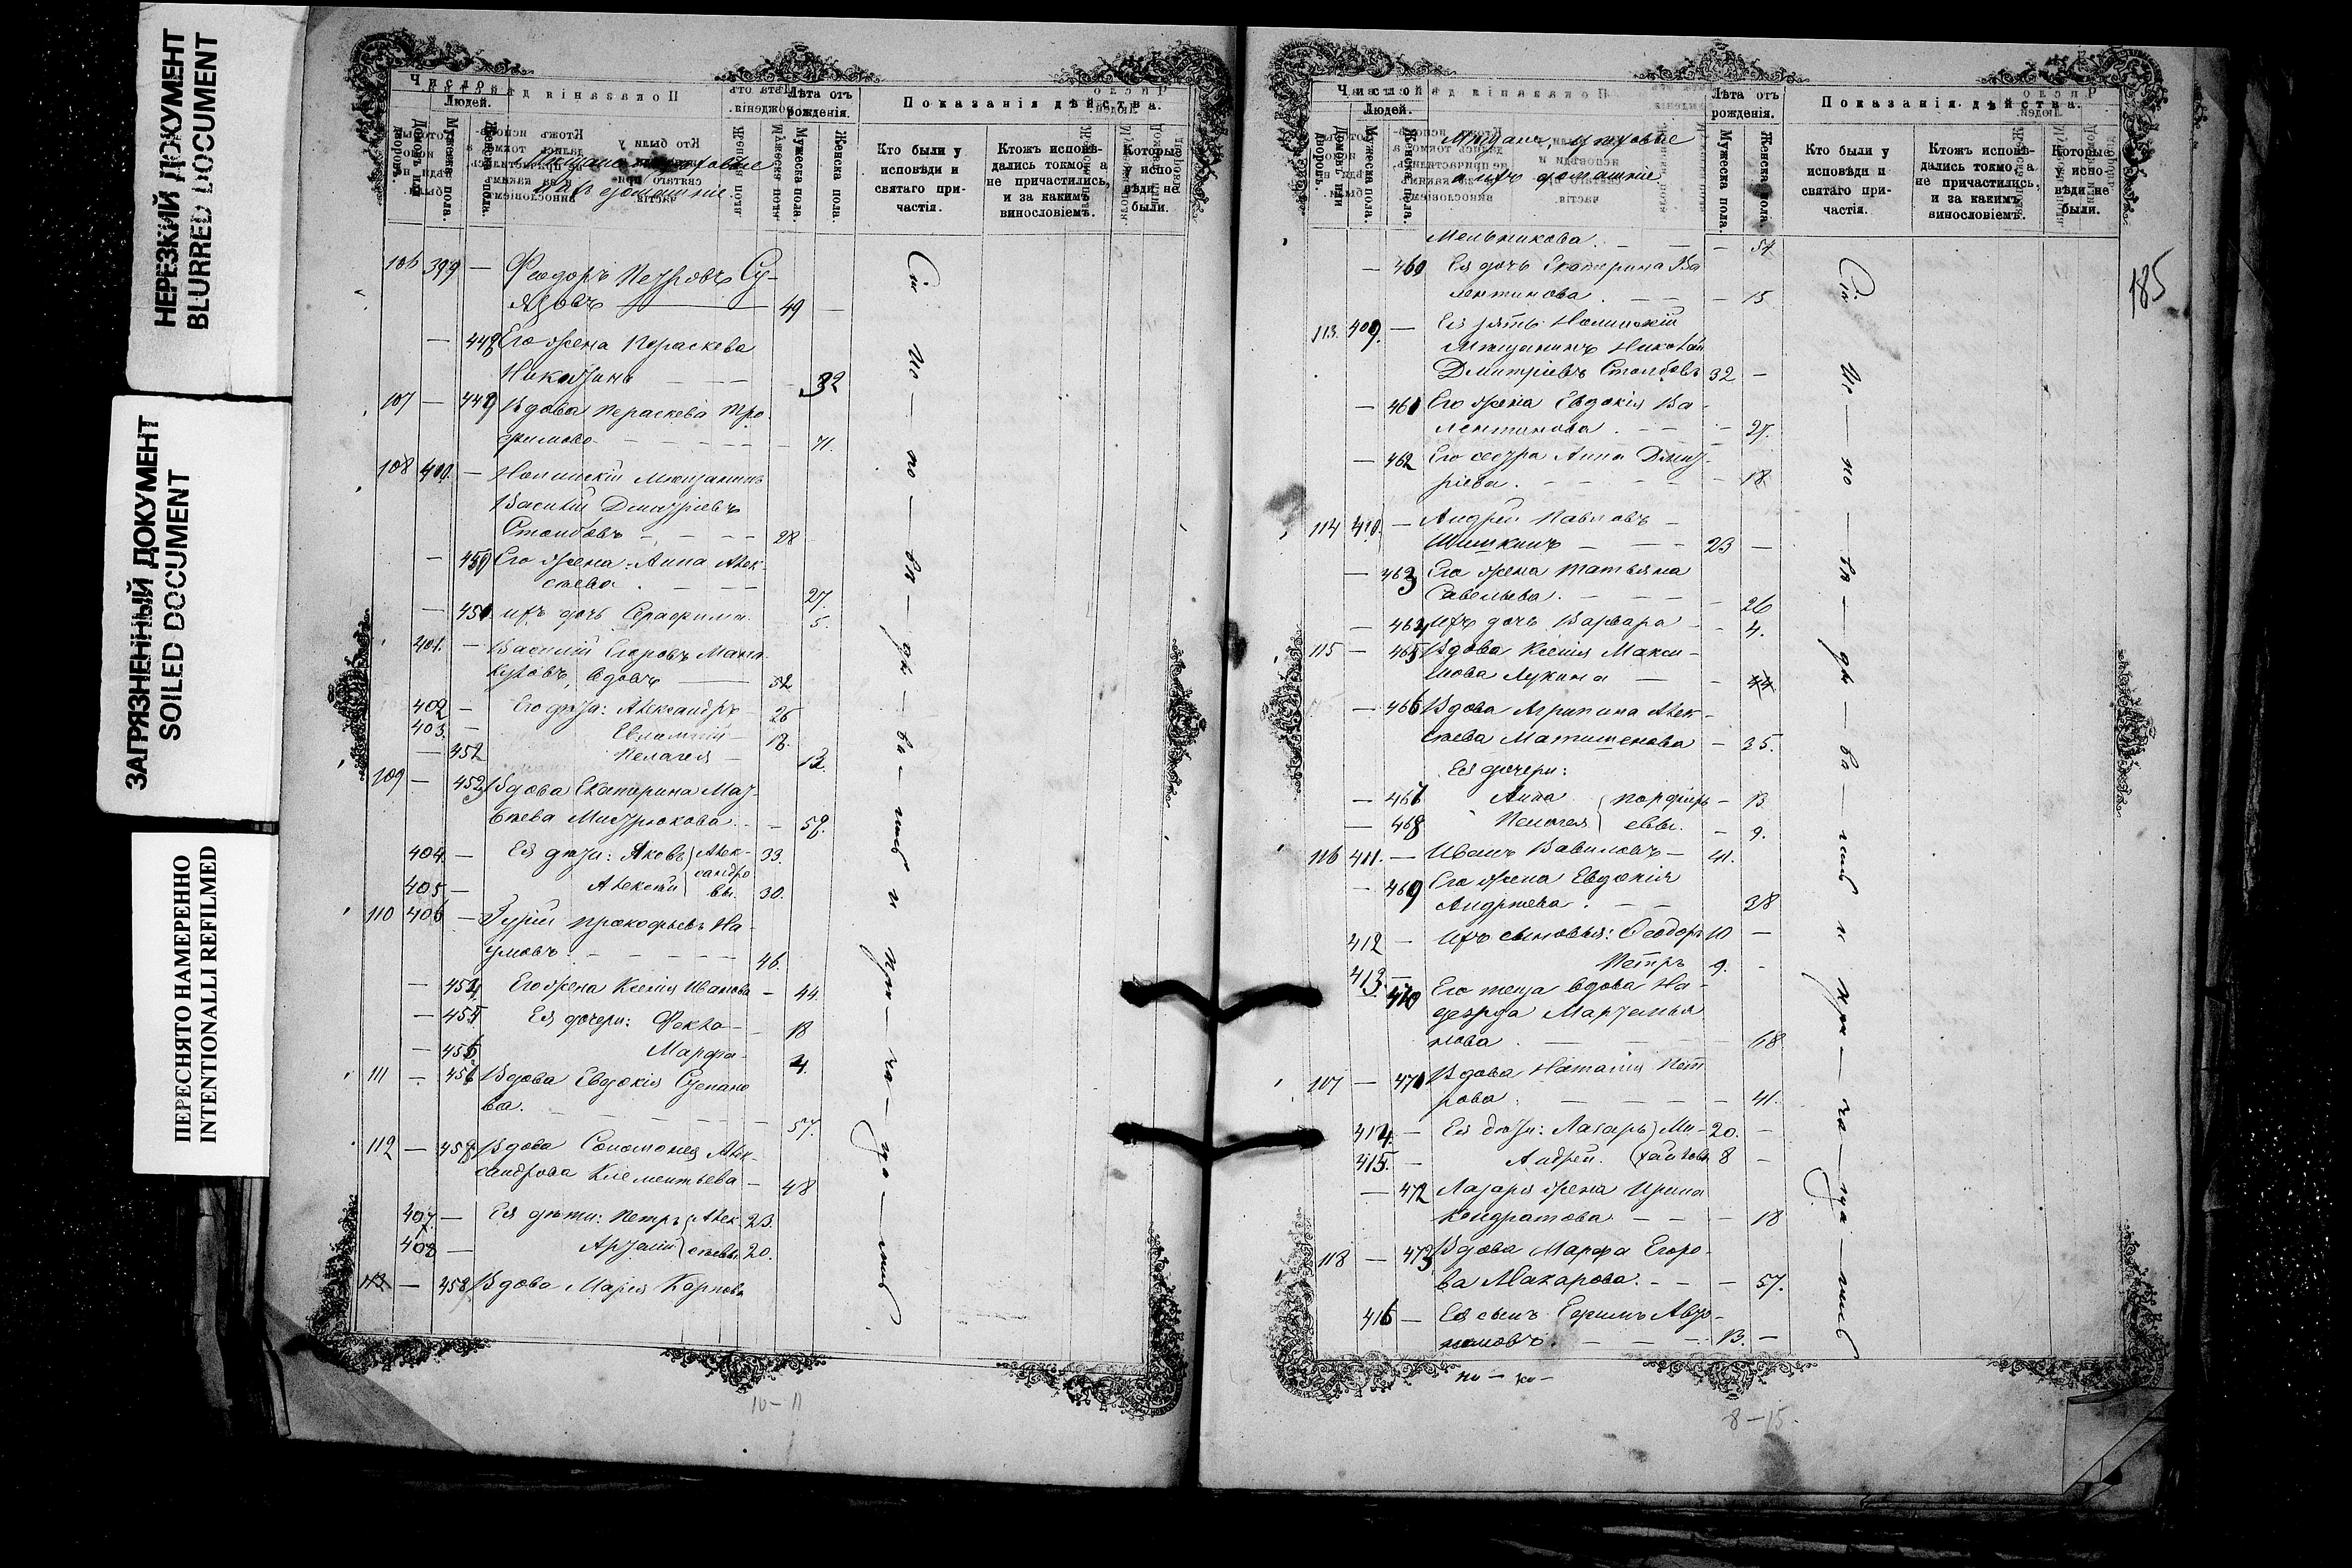 НЕРЕЗКИЙ ДОКУМЕНТ
BLURRED DOCUMENT
ЗАГРЯЗНЕННЫЙ ДОКУМЕНТ
SOILED DOCUMENT
ПЕРЕСНЯТО НАМЕРЕННО
INTENTIONALLI REFILMED
Число
Людей.
Домовъ или дворовъ.
Мужеска пола.
Женска пола.
Лѣта отъ рожденія.
Мужеска пола.
Женска пола.
Показанія дѣйства.
Кто были у
исповѣди и
святаго при-
частія.
Ктожъ исповѣ-
дались токмо, а
не причастились,
и за какимъ
винословіемъ.
Которые
у испо-
вѣди не
были.
106 399 — Феодоръ Петровъ Су-
49 —
— 448 Его жена Параскева
32
107 — 449 Вдова Параскева Тро
фимова 71.
108 400. — Нолинскій Мѣщанинъ
Василій Дмитріевъ
Столбовъ 28
— 450 Его жена Анна Алек-
сѣева 27.
— 451. ихъ дочь Серафима 5.
401. — Василій Егоровъ
вдовъ 52
402 — Его дѣти: Александръ 26
403. — Евлампій 18.
— 452 Пелагея 13.
109 — 453 Вдова Екатерина Мат-
вѣева Мистрюкова 58.
404. — Ея дѣти: Яковъ Алек- 33.
сандро
405 — Алексѣй вы. 30.
110 406 — Гурій Прокофьевъ На
умовъ 46.
— 454 Его жена Ксенія Иванова — 44.
— 455 Ея дочери: Фекла 18
— 456 Марфа 4.
111 — 456 Вдова Евдокія Степано
ва. 57.
112 — 458 Вдова Соломонея Алек-
сандрова Клементьева — 48
407. — Ея дѣти: Петръ Алек- 23.
408 — Арталій сѣевы. 20.
113 — 458 Вдова Марія Карпова
Сіи ис — по — вѣ — да — ва — лись и при — ча — ща — лись
10 — 11
185
Число
Людей.
Домовъ или дворовъ.
Мужеска пола.
Женска пола.
Мѣщане, цеховые
и ихъ домашніе
Лѣта отъ
рожденія.
Мужеска пола.
Женска пола.
Показанія дѣйства.
Кто были у
исповѣди и
святаго при-
частія.
Ктожъ исповѣ-
дались токмо, а
не причастились,
и за какимъ
винословіемъ.
Которые
у испо-
вѣди не
были.
Мельникова — 54
— 460 Ея дочь Екатерина Ва
лентинова — 15
113. 409. — Ея зять Нолинскій
Мѣщанинъ Николай
Дмитріевъ Столбовъ 32 —
— 461 Его жена Евдокія Ва-
лентинова — 27.
— 462 Его сестра Анна Дмит-
ріева — 18
114 410. — Андрей Павловъ
Шишкинъ 23 —
— 463 Его жена Татьяна
Савельева — 26
— 464 ихъ дочь Варвара — 4.
115 — 465 Вдова Ксенія Макси-
мова Лукина — 44
— 466 Вдова Агрипина Алек-
сѣева — 35.
Ея дочери:
— 467 Анна Порфирь- — 13
— 468 Пелагея евы. — 9.
116 411. — Иванъ Вавиловъ 41.
— 469 Его жена Евдокія
Андреева 38
412 — Ихъ сыновья: Ѳеодоръ 10 —
413. — Петръ 9. —
— 470 Его теща вдова На-
дежда Мартемья
нова 68
107 — 471 Вдова Наталія Пет
рова — 41.
414. — Ея дѣти: Лазарь Ми- 20. —
415. — Андрей хайловы 8 —
— 472 Лазаря жена Ирина
Кондратова — 18
118 — 473 Вдова Марфа Егоро-
ва Макарова — 57.
416 — Ея сынъ Ефимъ
13. —
Сіи ис — по — вѣ — да — ва — лись и при — ча — ща — лись
8 — 15.